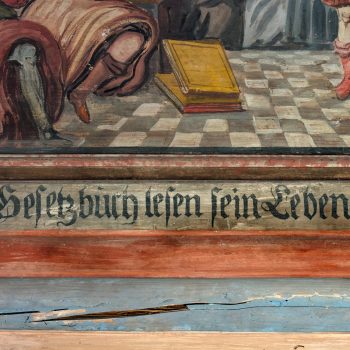 Gesetzbuch lesen sein Leben